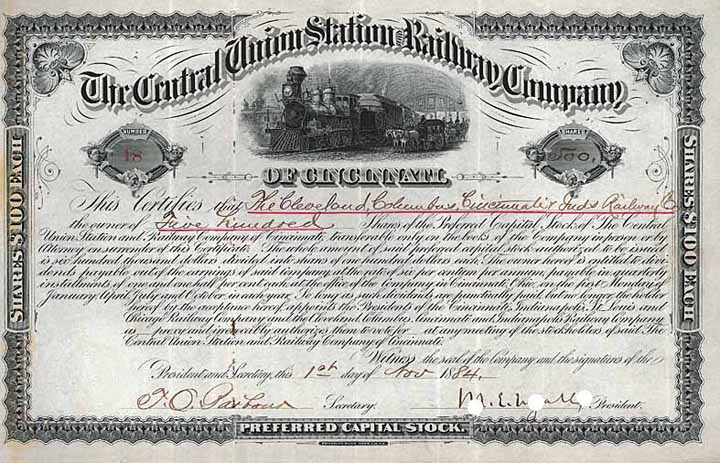 The Central Union Station and Railway Company
OF CINCINNATI.
NUMBER
18
SHARES
500.
SHARES $100 EACH
SHARES $100 EACH
This Certifies that The Cleveland Columbus Cincinnati & Inds Railway Co
the owner of Five Hundred Shares of the Preferred Capital Stock of The Central
Union Station and Railway Company of Cincinnati, transferable only on the books of the Company in person or by
Attorney on surrender of this Certificate. The whole amount of said preferred capital stock, authorized to be issued
is six hundred thousand dollars divided into shares of one hundred dollars each. The owner hereof is entitled to divi-
dends payable out of the earnings of said Company, at the rate of six per centum per annum, payable in quarterly
installments of one and one half per cent each, at the office of the Company in Cincinnati, Ohio, on the first Monday of
January, April, July and October, in each year. So long as such dividends are punctually paid, but no longer, the holder
hereof by the acceptance hereof appoints the Presidents of the Cincinnati, Indianapolis, St. Louis and
Chicago Railway Company and the Cleveland, Columbus, Cincinnati and Indianapolis Railway Company
as proxy and irrevocably authorizes them to vote for at any meeting of the stockholders of said The
Central Union Station and Railway Company of Cincinnati.
Witness the seal of the Company and the signatures of the
President and Secretary, this 1st day of Nov 1884.
Secretary.
M. E. President.
PREFERRED CAPITAL STOCK.